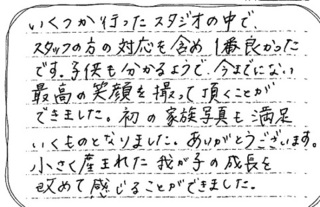 いくつか行ったスタジオの中で
スタッフの方の対応を含め1番良かった
です。子供も分かるようで、今までにない
最高の笑顔を撮って頂くことが
できました。初の家族写真も満足
いくものとなりました。ありがとうございます。
小さく産まれた我が子の成長を
改めて感じることができました。